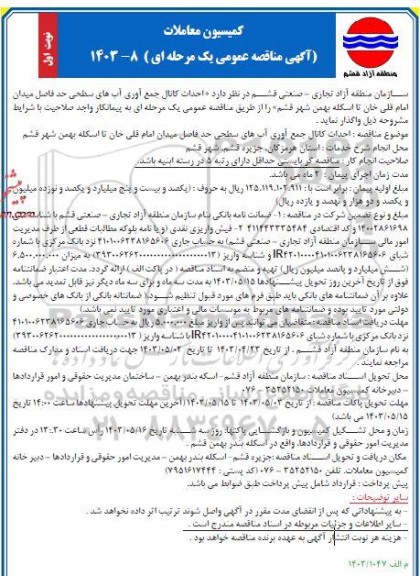 کمیسیون معاملات
(آگهی مناقصه عمومی یک مرحله ای) ۸- ۱۴۰۳
نوبت اول
منطقه آزاد قشم
سازمان منطقه آزاد تجاری – صنعتی قشم در نظر دارد «احداث کانال جمع آوری آب های سطحی حد فاصل میدان
امام قلی خان تا اسکله بهمن شهر قشم» را از طریق مناقصه عمومی یک مرحله ای به پیمانکار واجد صلاحیت با شرایط
مشروحه ذیل واگذار نماید.
موضوع مناقصه: احداث کانال جمع آوری آب های سطحی حد فاصل میدان امام قلی خان تا اسکله بهمن شهر قشم
محل انجام شرح خدمات: استان هرمزگان، جزیره قشم، شهر قشم
صلاحیت انجام کار: مناقصه گر بایستی حداقل دارای رتبه ۵ در رسته ابنیه باشد.
مدت زمان اجرای پیمان: ۲ ماه می باشد.
مبلغ اولیه پیمان: برابر است با: ۱۲۵.۱۱۹.۱۰۲.۹۱۱ ریال به حروف: (یکصد و بیست و پنج میلیارد و یکصد و نوزده میلیون
و یکصد و دو هزار و نهصد و یازده ریال)
مبلغ و نوع تضمین شرکت در مناقصه: ۱- ضمانت نامه بانکی بنام سازمان منطقه آزاد تجاری – صنعتی قشم با شناسه
۱۴۰۰۲۸۶۱۶۹۸ و کد اقتصادی ۴۱۱۴۴۳۳۳۵۴۸۴ ۲- فیش واریزی نقدی (و یا نامه بلوکه مطالبات قطعی از طرف مدیریت
امور مالی سازمان منطقه آزاد تجاری – صنعتی قشم) به حساب جاری ۴۱۰۱۰۰۶۲۳۸۱۶۵۶۰۶ نزد بانک مرکزی با شماره
شبای
و شناسه واریز
به میزان ۶.۵۰۰.۰۰۰.۰۰۰
(شش میلیارد و پانصد میلیون ریال) تهیه و منضم به اسناد مناقصه (در پاکت الف) ارائه گردد. مدت اعتبار ضمانتنامه
فوق از تاریخ آخرین روز تحویل پیشنهادها ۱۴۰۳/۰۵/۱۵ به مدت سه ماه و برای سه ماه دیگر نیز قابل تمدید می باشد.
علاوه بر آن ضمانتنامه های بانکی باید طبق فرم های مورد قبول تنظیم شود (ضمانتنامه بانکی از بانک های خصوصی و
دولتی مورد تایید بوده و ضمانتنامه های مربوط به موسسات مالی و اعتباری مورد تایید نمی باشد).
مهلت دریافت اسناد مناقصه: متقاضیان می توانند پس از واریز مبلغ ۵.۰۰۰.۰۰۰ ریال به حساب جاری ۴۱۰۱۰۰۶۲۳۸۱۶۵۶۰۶
نزد بانک مرکزی با شماره شبای
با شناسه واریز
به نام سازمان منطقه آزاد قشم ، از تاریخ ۱۴۰۳/۰۴/۲۳ تا تاریخ ۱۴۰۳/۰۵/۰۲ جهت دریافت اسناد و مدارک مناقصه
مراجعه نمایند.
محل تحویل اسناد مناقصه: سازمان منطقه آزاد قشم- اسکله بندر بهمن – ساختمان مدیریت حقوقی و امور قراردادها
– دبیرخانه کمیسیون معاملات ۳۵۲۵۲۱۵۰ – ۰۷۶
مهلت تحویل پاکات مناقصه: از تاریخ ۱۴۰۳/۰۵/۰۳ تا ۱۴۰۳/۰۵/۱۵ (آخرین مهلت تحویل پیشنهادها ساعت ۱۴:۰۰ تاریخ
۱۴۰۳/۰۵/۱۵ می باشد)
زمان و محل تشکیل کمیسیون و بازگشایی پاکتها: روز سه شنبه تاریخ ۱۴۰۳/۰۵/۱۶ رأس ساعت ۱۳:۳۰ در دفتر
مدیریت امور حقوقی و قراردادها، واقع در اسکله بندر بهمن قشم.
مکان دریافت و تحویل اسناد مناقصه: جزیره قشم- اسکله بندر بهمن – مدیریت امور حقوقی و قراردادها – دبیر خانه
کمیسیون معاملات. تلفن ۳۵۲۵۲۱۵۰ – ۰۷۶ (کد پستی: ۷۹۵۱۶۱۷۴۴۴)
پیش پرداخت: قرارداد شامل پیش پرداخت طبق ضوابط می باشد.
سایر توضیحات:
- به پیشنهاداتی که پس از انقضای مدت مقرر در آگهی واصل شوند ترتیب اثر داده نخواهد شد.
- سایر اطلاعات و جزئیات مربوطه در اسناد مناقصه مندرج است.
- هزینه هر نوبت انتشار آگهی به عهده برنده مناقصه خواهد بود.
م الف ۱۴۰۳/۱۰۴۷